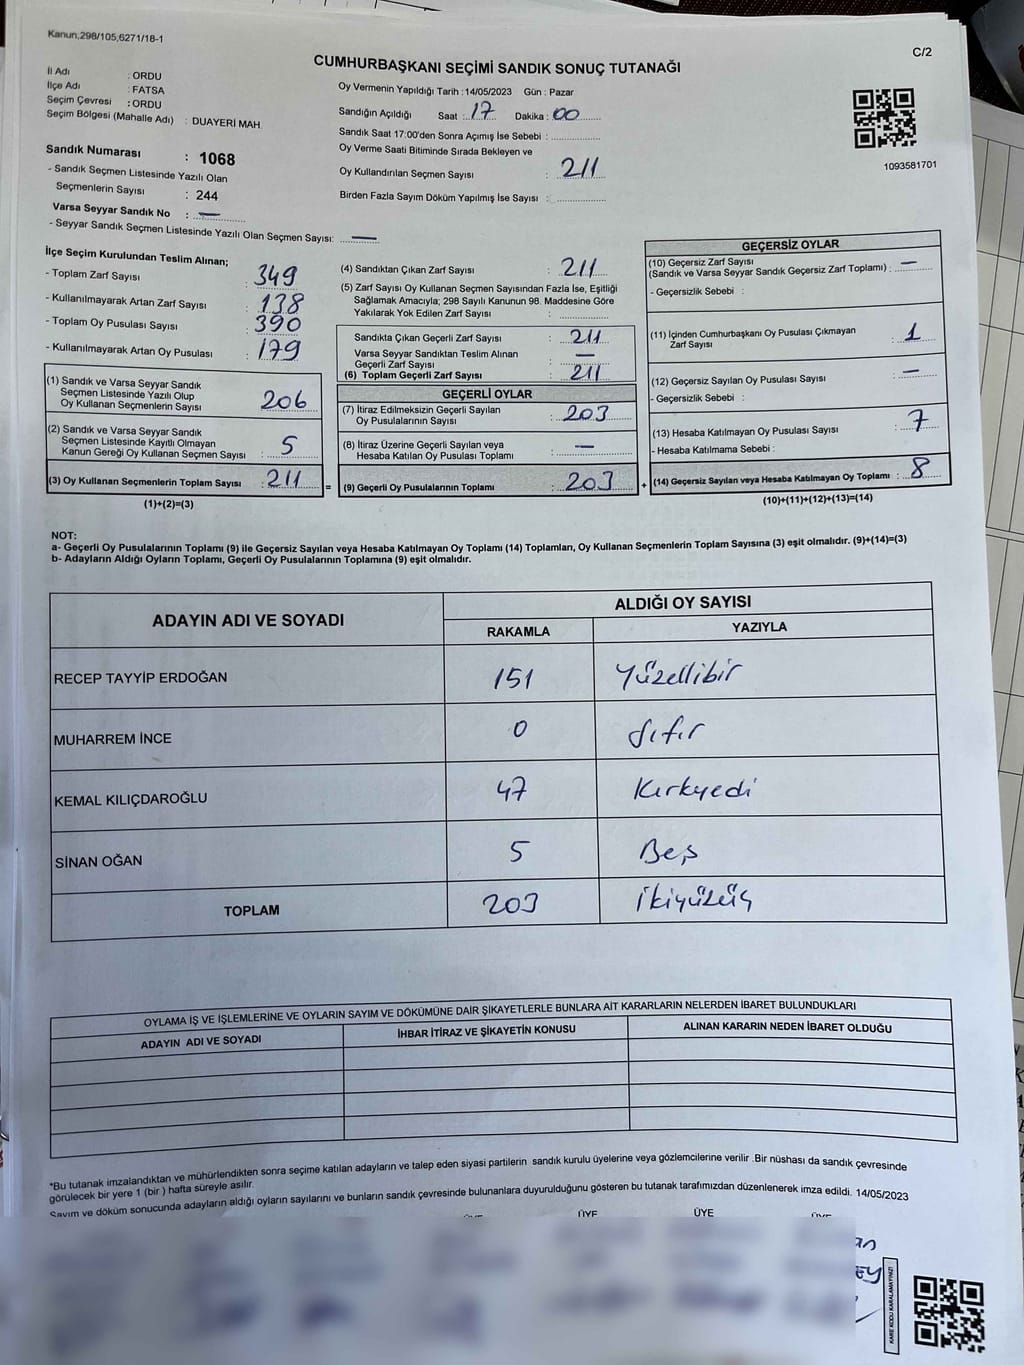 Kanun,298/105,6271/18-1
C/2
CUMHURBAŞKANI SEÇİMİ SANDIK SONUÇ TUTANAĞI
İl Adı : ORDU
İlçe Adı : FATSA
Seçim Çevresi : ORDU
Seçim Bölgesi (Mahalle Adı) : DUAYERİ MAH.
Sandık Numarası : 1068
- Sandık Seçmen Listesinde Yazılı Olan
Seçmenlerin Sayısı : 244
Varsa Seyyar Sandık No : —
- Seyyar Sandık Seçmen Listesinde Yazılı Olan Seçmen Sayısı: —
Oy Vermenin Yapıldığı Tarih : 14/05/2023 Gün : Pazar
Sandığın Açıldığı Saat : 17 Dakika : 00
Sandık Saat 17:00'den Sonra Açımış İse Sebebi :
Oy Verme Saati Bitiminde Sırada Bekleyen ve
Oy Kullandırılan Seçmen Sayısı : 211
Birden Fazla Sayım Döküm Yapılmış İse Sayısı :
1093581701
İlçe Seçim Kurulundan Teslim Alınan;
- Toplam Zarf Sayısı : 349
- Kullanılmayarak Artan Zarf Sayısı : 138
- Toplam Oy Pusulası Sayısı : 390
- Kullanılmayarak Artan Oy Pusulası : 179
(1) Sandık ve Varsa Seyyar Sandık
Seçmen Listesinde Yazılı Olup
Oy Kullanan Seçmenlerin Sayısı : 206
(2) Sandık ve Varsa Seyyar Sandık
Seçmen Listesinde Kayıtlı Olmayan
Kanun Gereği Oy Kullanan Seçmen Sayısı : 5
(3) Oy Kullanan Seçmenlerin Toplam Sayısı : 211 =
(1)+(2)=(3)
(4) Sandıktan Çıkan Zarf Sayısı : 211
(5) Zarf Sayısı Oy Kullanan Seçmen Sayısından Fazla İse, Eşitliği
Sağlamak Amacıyla; 298 Sayılı Kanunun 98. Maddesine Göre
Yakılarak Yok Edilen Zarf Sayısı :
Sandıkta Çıkan Geçerli Zarf Sayısı : 211
Varsa Seyyar Sandıktan Teslim Alınan
Geçerli Zarf Sayısı : —
(6) Toplam Geçerli Zarf Sayısı : 211
GEÇERLİ OYLAR
(7) İtiraz Edilmeksizin Geçerli Sayılan
Oy Pusulalarının Sayısı : 203
(8) İtiraz Üzerine Geçerli Sayılan veya
Hesaba Katılan Oy Pusulası Toplamı : —
(9) Geçerli Oy Pusulalarının Toplamı : 203 +
GEÇERSİZ OYLAR
(10) Geçersiz Zarf Sayısı
(Sandık ve Varsa Seyyar Sandık Geçersiz Zarf Toplamı) : —
- Geçersizlik Sebebi :
(11) İçinden Cumhurbaşkanı Oy Pusulası Çıkmayan
Zarf Sayısı : 1
(12) Geçersiz Sayılan Oy Pusulası Sayısı : —
- Geçersizlik Sebebi :
(13) Hesaba Katılmayan Oy Pusulası Sayısı : 7
- Hesaba Katılmama Sebebi :
(14) Geçersiz Sayılan veya Hesaba Katılmayan Oy Toplamı : 8
(10)+(11)+(12)+(13)=(14)
NOT:
a- Geçerli Oy Pusulalarının Toplamı (9) ile Geçersiz Sayılan veya Hesaba Katılmayan Oy Toplamı (14) Toplamları, Oy Kullanan Seçmenlerin Toplam Sayısına (3) eşit olmalıdır. (9)+(14)=(3)
b- Adayların Aldığı Oyların Toplamı, Geçerli Oy Pusulalarının Toplamına (9) eşit olmalıdır.
ADAYIN ADI VE SOYADI ALDIĞI OY SAYISI
RAKAMLA YAZIYLA
RECEP TAYYİP ERDOĞAN 151 Yüzellibir
MUHARREM İNCE 0 Sıfır
KEMAL KILIÇDAROĞLU 47 Kırkyedi
SİNAN OĞAN 5 Beş
TOPLAM 203 İkiyüzüç
OYLAMA İŞ VE İŞLEMLERİNE VE OYLARIN SAYIM VE DÖKÜMÜNE DAİR ŞİKAYETLERLE BUNLARA AİT KARARLARIN NELERDEN İBARET BULUNDUKLARI
ADAYIN ADI VE SOYADI İHBAR İTİRAZ VE ŞİKAYETİN KONUSU ALINAN KARARIN NEDEN İBARET OLDUĞU
*Bu tutanak imzalandıktan ve mühürlendikten sonra seçime katılan adayların ve talep eden siyasi partilerin sandık kurulu üyelerine veya gözlemcilerine verilir .Bir nüshası da sandık çevresinde
görülecek bir yere 1 (bir ) hafta süreyle asılır.
Sayım ve döküm sonucunda adayların aldığı oyların sayılarını ve bunların sandık çevresinde bulunanlara duyurulduğunu gösteren bu tutanak tarafımızdan düzenlenerek imza edildi. 14/05/2023
ÜYE ÜYE ÜYE ÜYE
KARE KODU KARALAMAYINIZ!